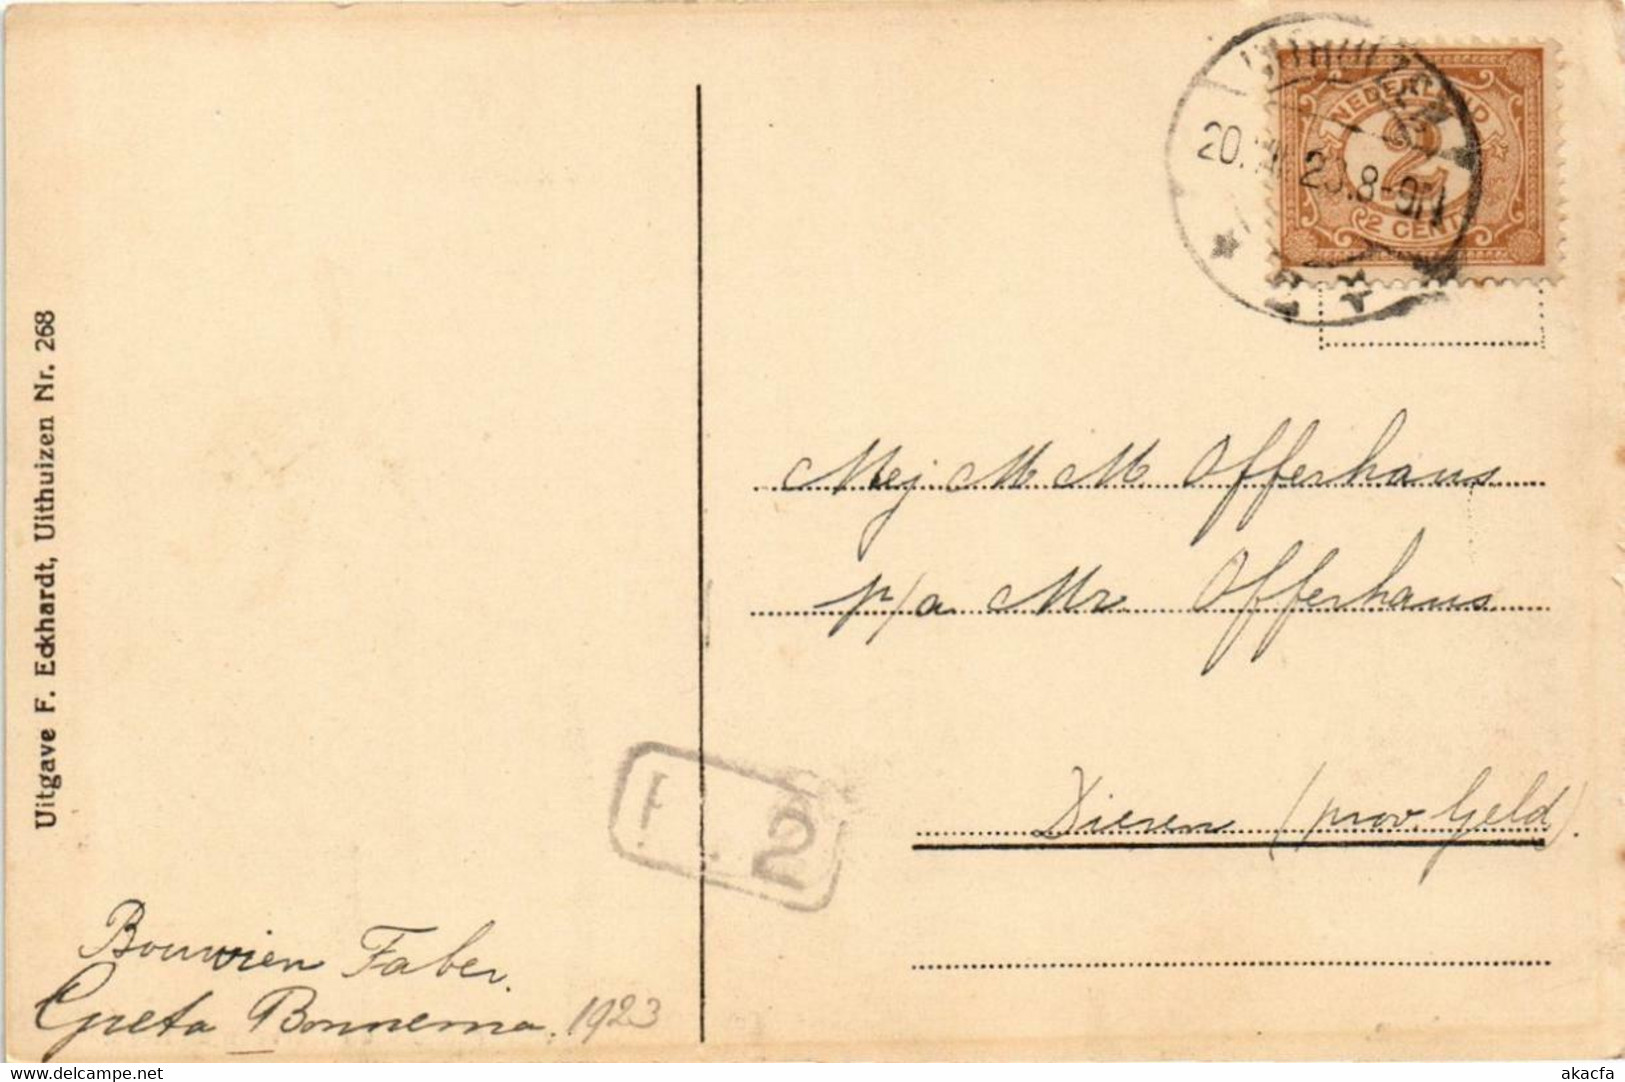 UITHUIZEN
20. 23.8-9N
NEDERLAND
2
2 CENT
Uitgave F. Eckhardt, Uithuizen Nr. 268
Mej M M Offerhaus
p/a Mr Offerhaus
Dieren (prov. Geld).
2
Bouwien Faber.
Greta Bonnema. 1923
www.delcampe.net
akacfa